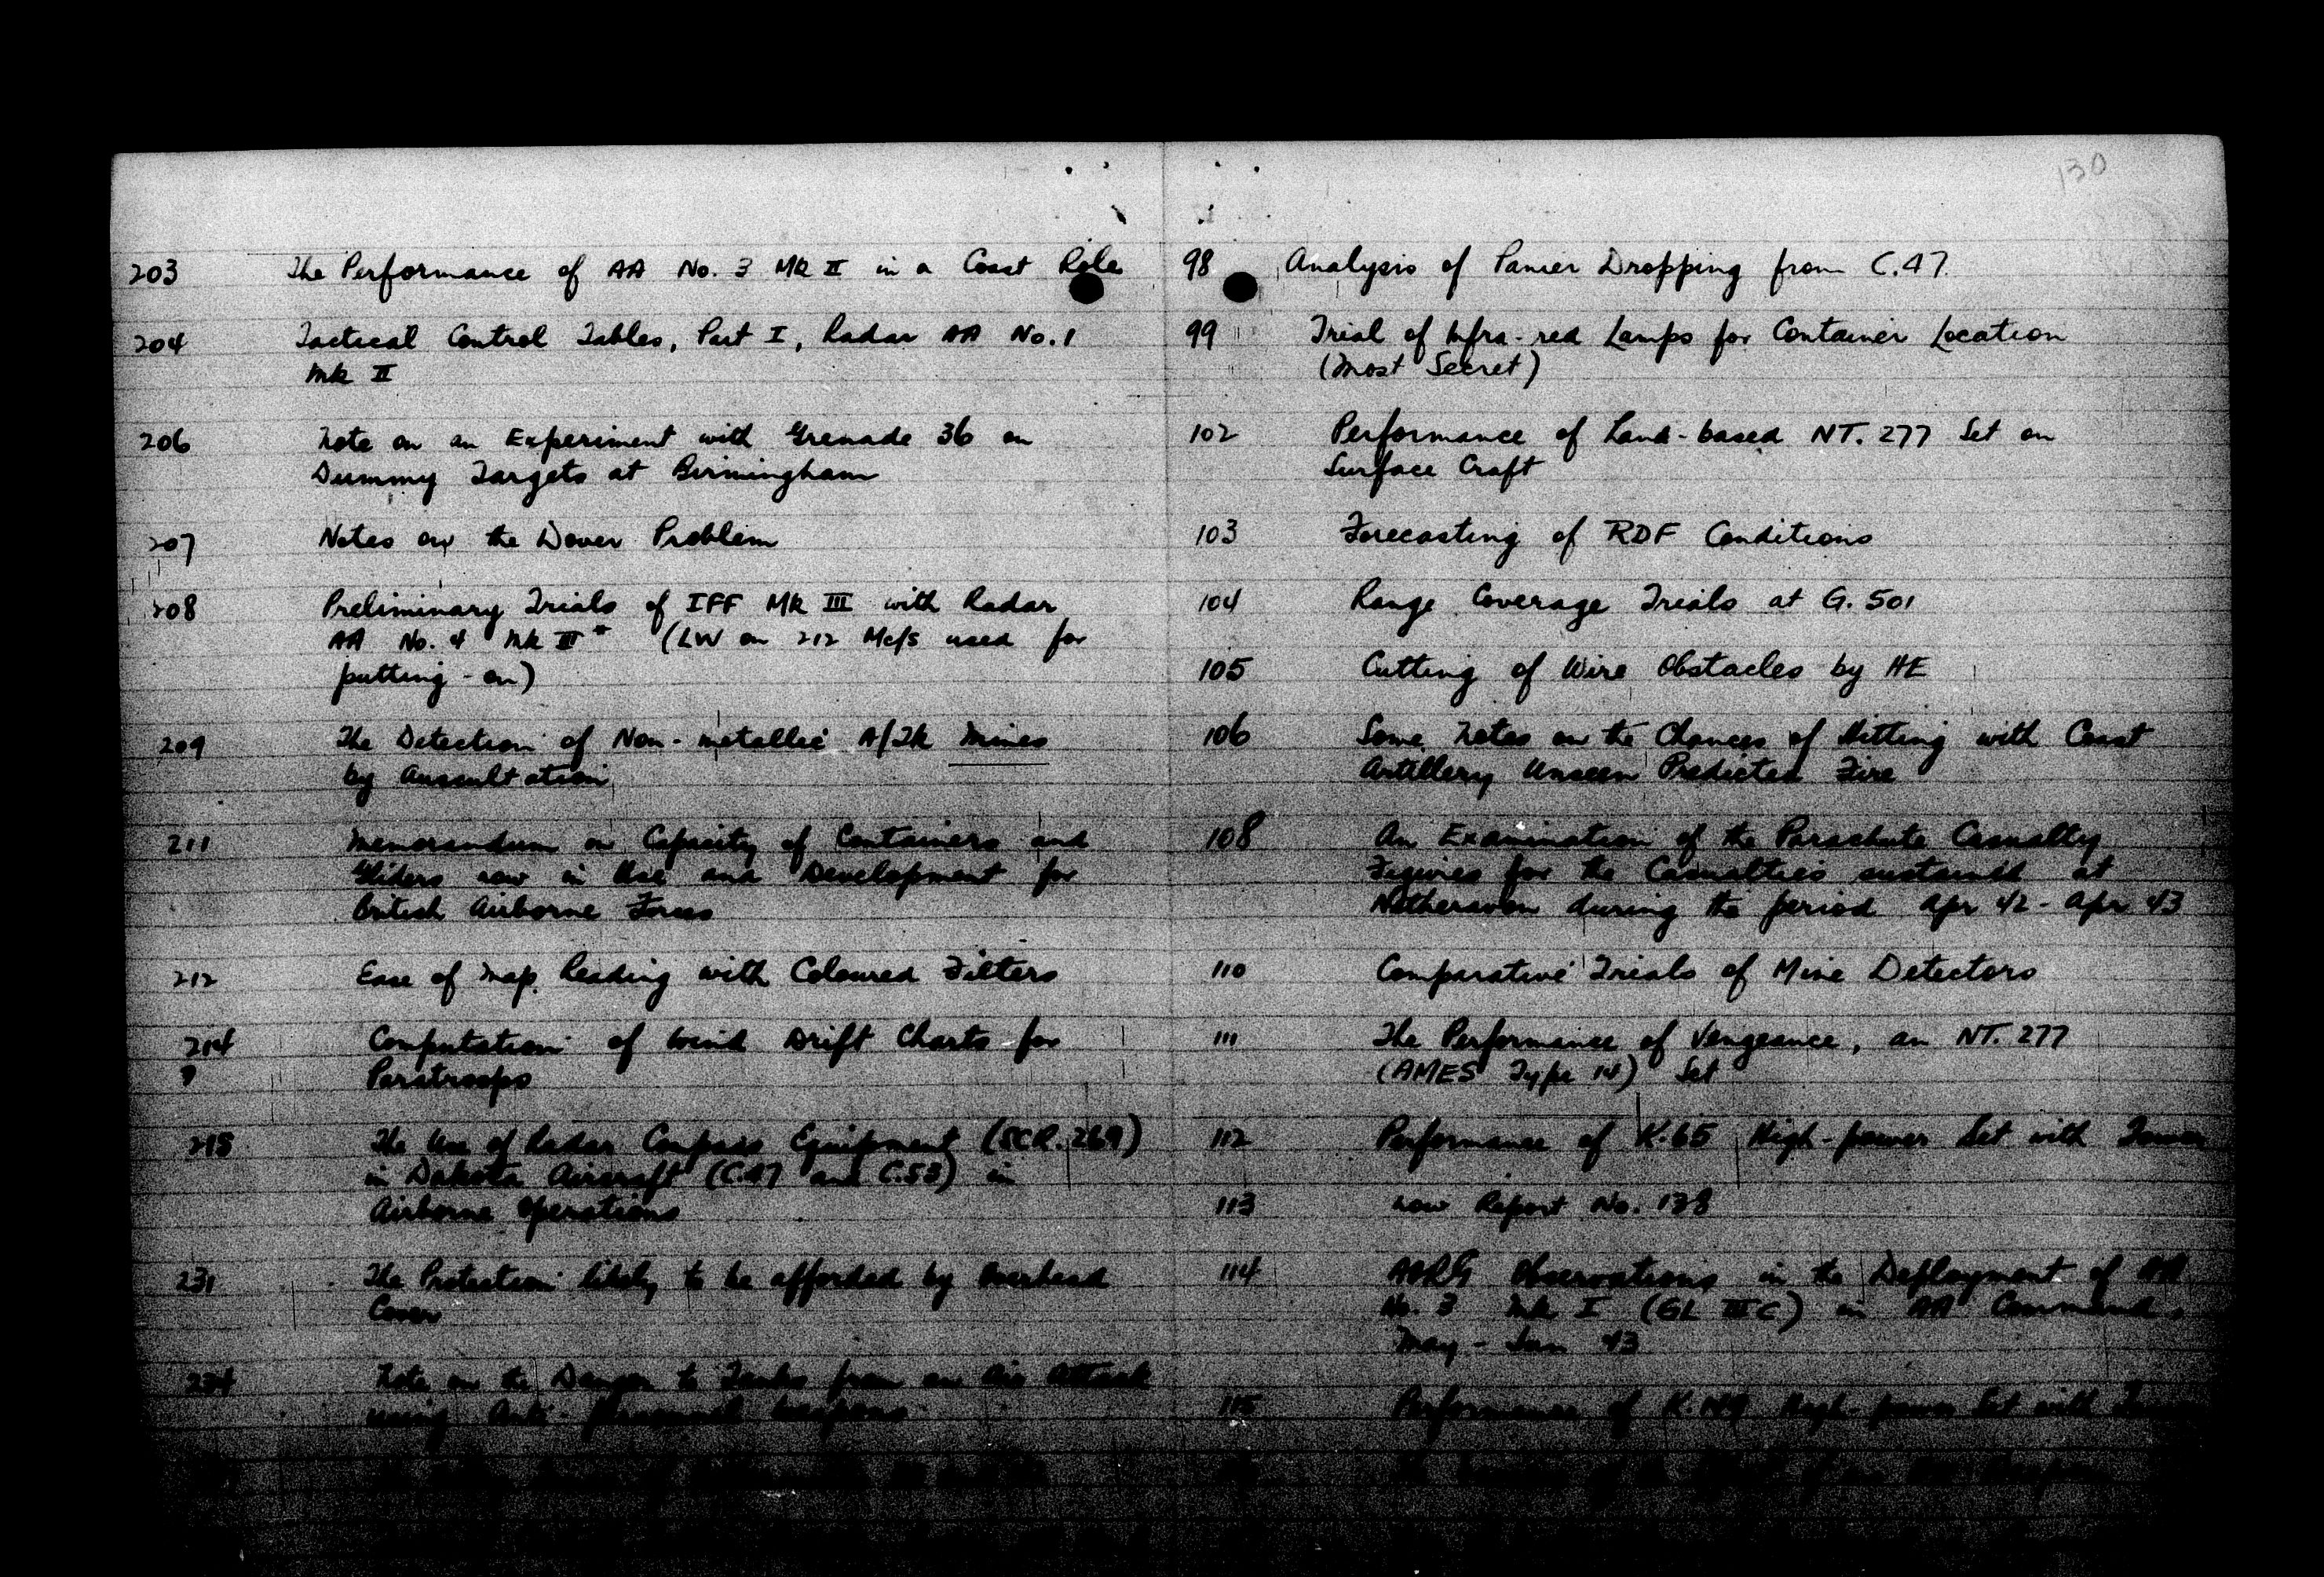 130
203 The Performance of AA No. 3 Mk II in a Coast Role
204 Tactical Control Tables, Part I, Radar AA No. 1
Mk II
206 Note on an Experiment with Grenade 36 on
Dummy Targets at Birmingham
207 Notes on the Dover Problem
208 Preliminary Trials of IFF Mk III with Radar
AA No. 4 Mk III* (LW on 212 Mc/s used for
putting-on)
209 The Detection of Non-metallic A/Tk Mines
by Auscultation
211 Memorandum on Capacity of Containers and
Gliders now in Use and Development for
British Airborne Forces
212 Ease of Map Reading with Coloured Filters
214 Computation of Wind Drift Charts for
? Paratroops
215 The Use of Radar Compass Equipment (SCR.269)
in Dakota Aircraft (C.47 and C.53) in
Airborne Operations
231 The Protection likely to be afforded by Overhead
Cover
234 Note on the Danger to Tanks from an Air Attack
using Anti-Personnel Weapons
98 Analysis of Panier Dropping from C.47
99 Trial of Infra-red Lamps for Container Location
(Most Secret)
102 Performance of Land-based NT.277 Set on
Surface Craft
103 Forecasting of RDF Conditions
104 Range Coverage Trials at G.501
105 Cutting of Wire Obstacles by HE
106 Some Notes on the Chances of Hitting with Coast
Artillery Unseen Predicted Fire
108 An Examination of the Parachute Casualty
Figures for the Casualties sustained at
Netheravon during the period Apr 42 - Apr 43
110 Comparative Trials of Mine Detectors
111 The Performance of Vengeance, an NT.277
(AMES Type 14) Set
112 Performance of K.65 High-power Set with Tower
113 now Report No. 138
114 AORG Observations in the Deployment of AA
No. 3 Mk I (GL III C) in AA Command,
May - Jan 43
115 Performance of High-power Set with